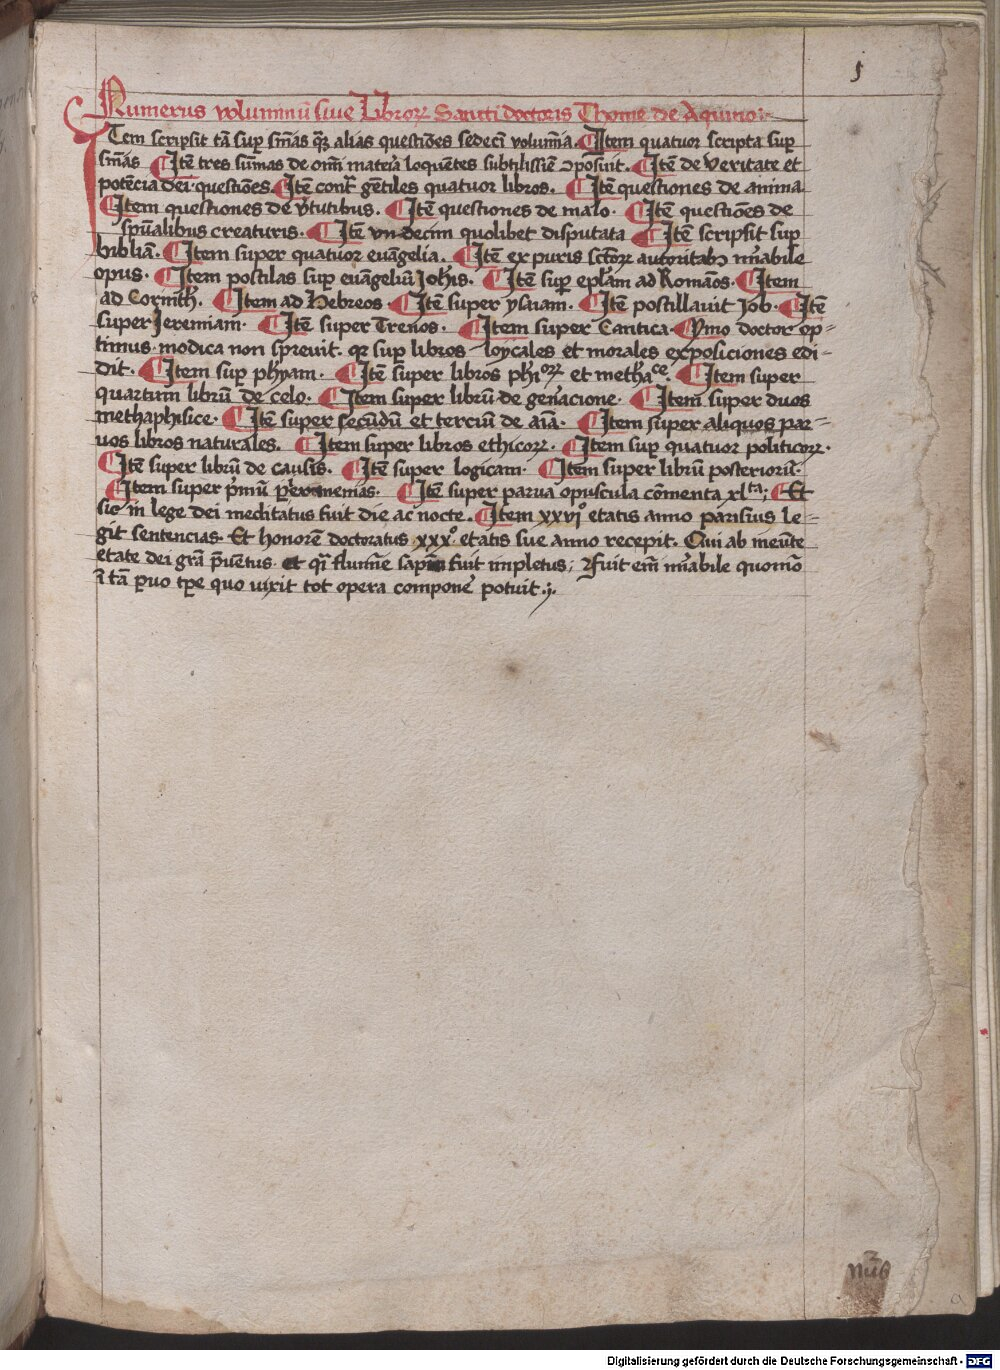 5
Numerus voluminū siue Librorꝝ Sancti doctoris Thome de Aquino
Item scripsit tā sup̱ sm̄as qꝫ alias questiōes sedecī volumīa. Item quatuor scripta sup̱
sm̄as Itē tres sūmas de omī materia loquētes subtilissīe ꝯposuit. Itē de veritate et
potēcia dei questiōes. Itē contͣ gētiles quatuor libros. Itē questiones de anima
Item questiones de v̓tutibus. Itē questiones de malo. Itē questiōes de
spūalibus creaturis. Itē vndecim quolibet disputata Itē scripsit sup
bibliā. Item super quatuor euāgelia. Itē ex puris sc̄torꝝ autoritabꝫ mīabile
opus. Item postilas sup̱ euāgeliū Joh̓is. Itē sup̱ ep̄lam ad Romāos. Item
ad Corinth̓. Item ad Hebreos. Itē super ysaiam. Itē postillauit Job. Itē
super Jeremiam. Itē super Trenos. Item super Cantica. Ymo doctor op-
timus modica non spreuit. qꝛ sup̱ libros loycales et morales exposiciones edi-
dit. Item sup̱ phyam. Itē super libros phiͦꝝ et methaᶜᵉ. Item super
quartum librū de celo. Item super librū de gen̓acione. Item super duos
methaphisice. Itē super secūdū et terciū de aīa. Item super aliquos par-
uos libros naturales. Item super libros ethicorꝝ. Item sup̱ quatuor politicorꝝ.
Itē super librū de causis. Itē super logicam. Item super librū posteriorū.
Item super p̓mū per̓xemenias. Itē super parua opuscula cōmenta xlᵗᵃ; Et
sic in lege dei meditatus fuit die ac nocte. Item xxviº etatis anno parisius le-
git sentencias. Et honorē doctoratus xxxº etatis sue anno recepit. Qui ab ineūte
etate dei grā p̄uētus et qͣi flumīe sap̄īe fuit impletus; fuit em̄ mīabile quomͦo
ī tā p̱uo tp̱e quo vixit tot opera compone̓ potuit.
Digitalisierung gefördert durch die Deutsche Forschungsgemeinschaft - DFG